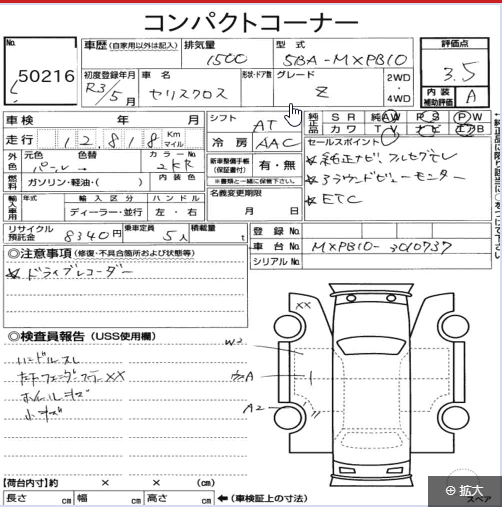 コンパクトコーナー
No. 50216
車歴 (自家用以外は記入) 排気量 1500 型式 5BA-MXPB10
評価点 3.5
初度登録年月 R3/5月 車名 ヤリスクロス 形状・ドア数 グレード Z 2WD・4WD
内装補助評価 A
車検 年 月
シフト AT
純正品 SR 純AW PS PW
カワ TV ナビ エアB
走行 12,818 Km マイル
冷房 AAC
セールスポイント
外色 元色 パール 色替 カラーNo. 2KR
新車整備手帳(保証書付) 有・無
※書類と一緒に保管下さい。
☆純正ナビ、フルセグTV
☆アラウンドビューモニター
☆ETC
燃料 ガソリン・軽油・( ) 内装色
名義変更期限
月 日
輸入車用 年式 輸入区分 ハンドル
ディーラー・並行 左・右
リサイクル預託金 8340円 乗車定員 5人 積載量 t
登録No.
車台No. MXPB10-3010737
シリアルNo.
◎注意事項 (修復・不具合箇所および状態等)
☆ドライブレコーダー
◎検査員報告 (USS使用欄)
ハンドルスレ
XX
小キズ
XX
W2
A
A2
【荷台内寸】約 × × (cm)
長さ cm 幅 cm 高さ cm ←(車検証上の寸法)
スペア
拡大